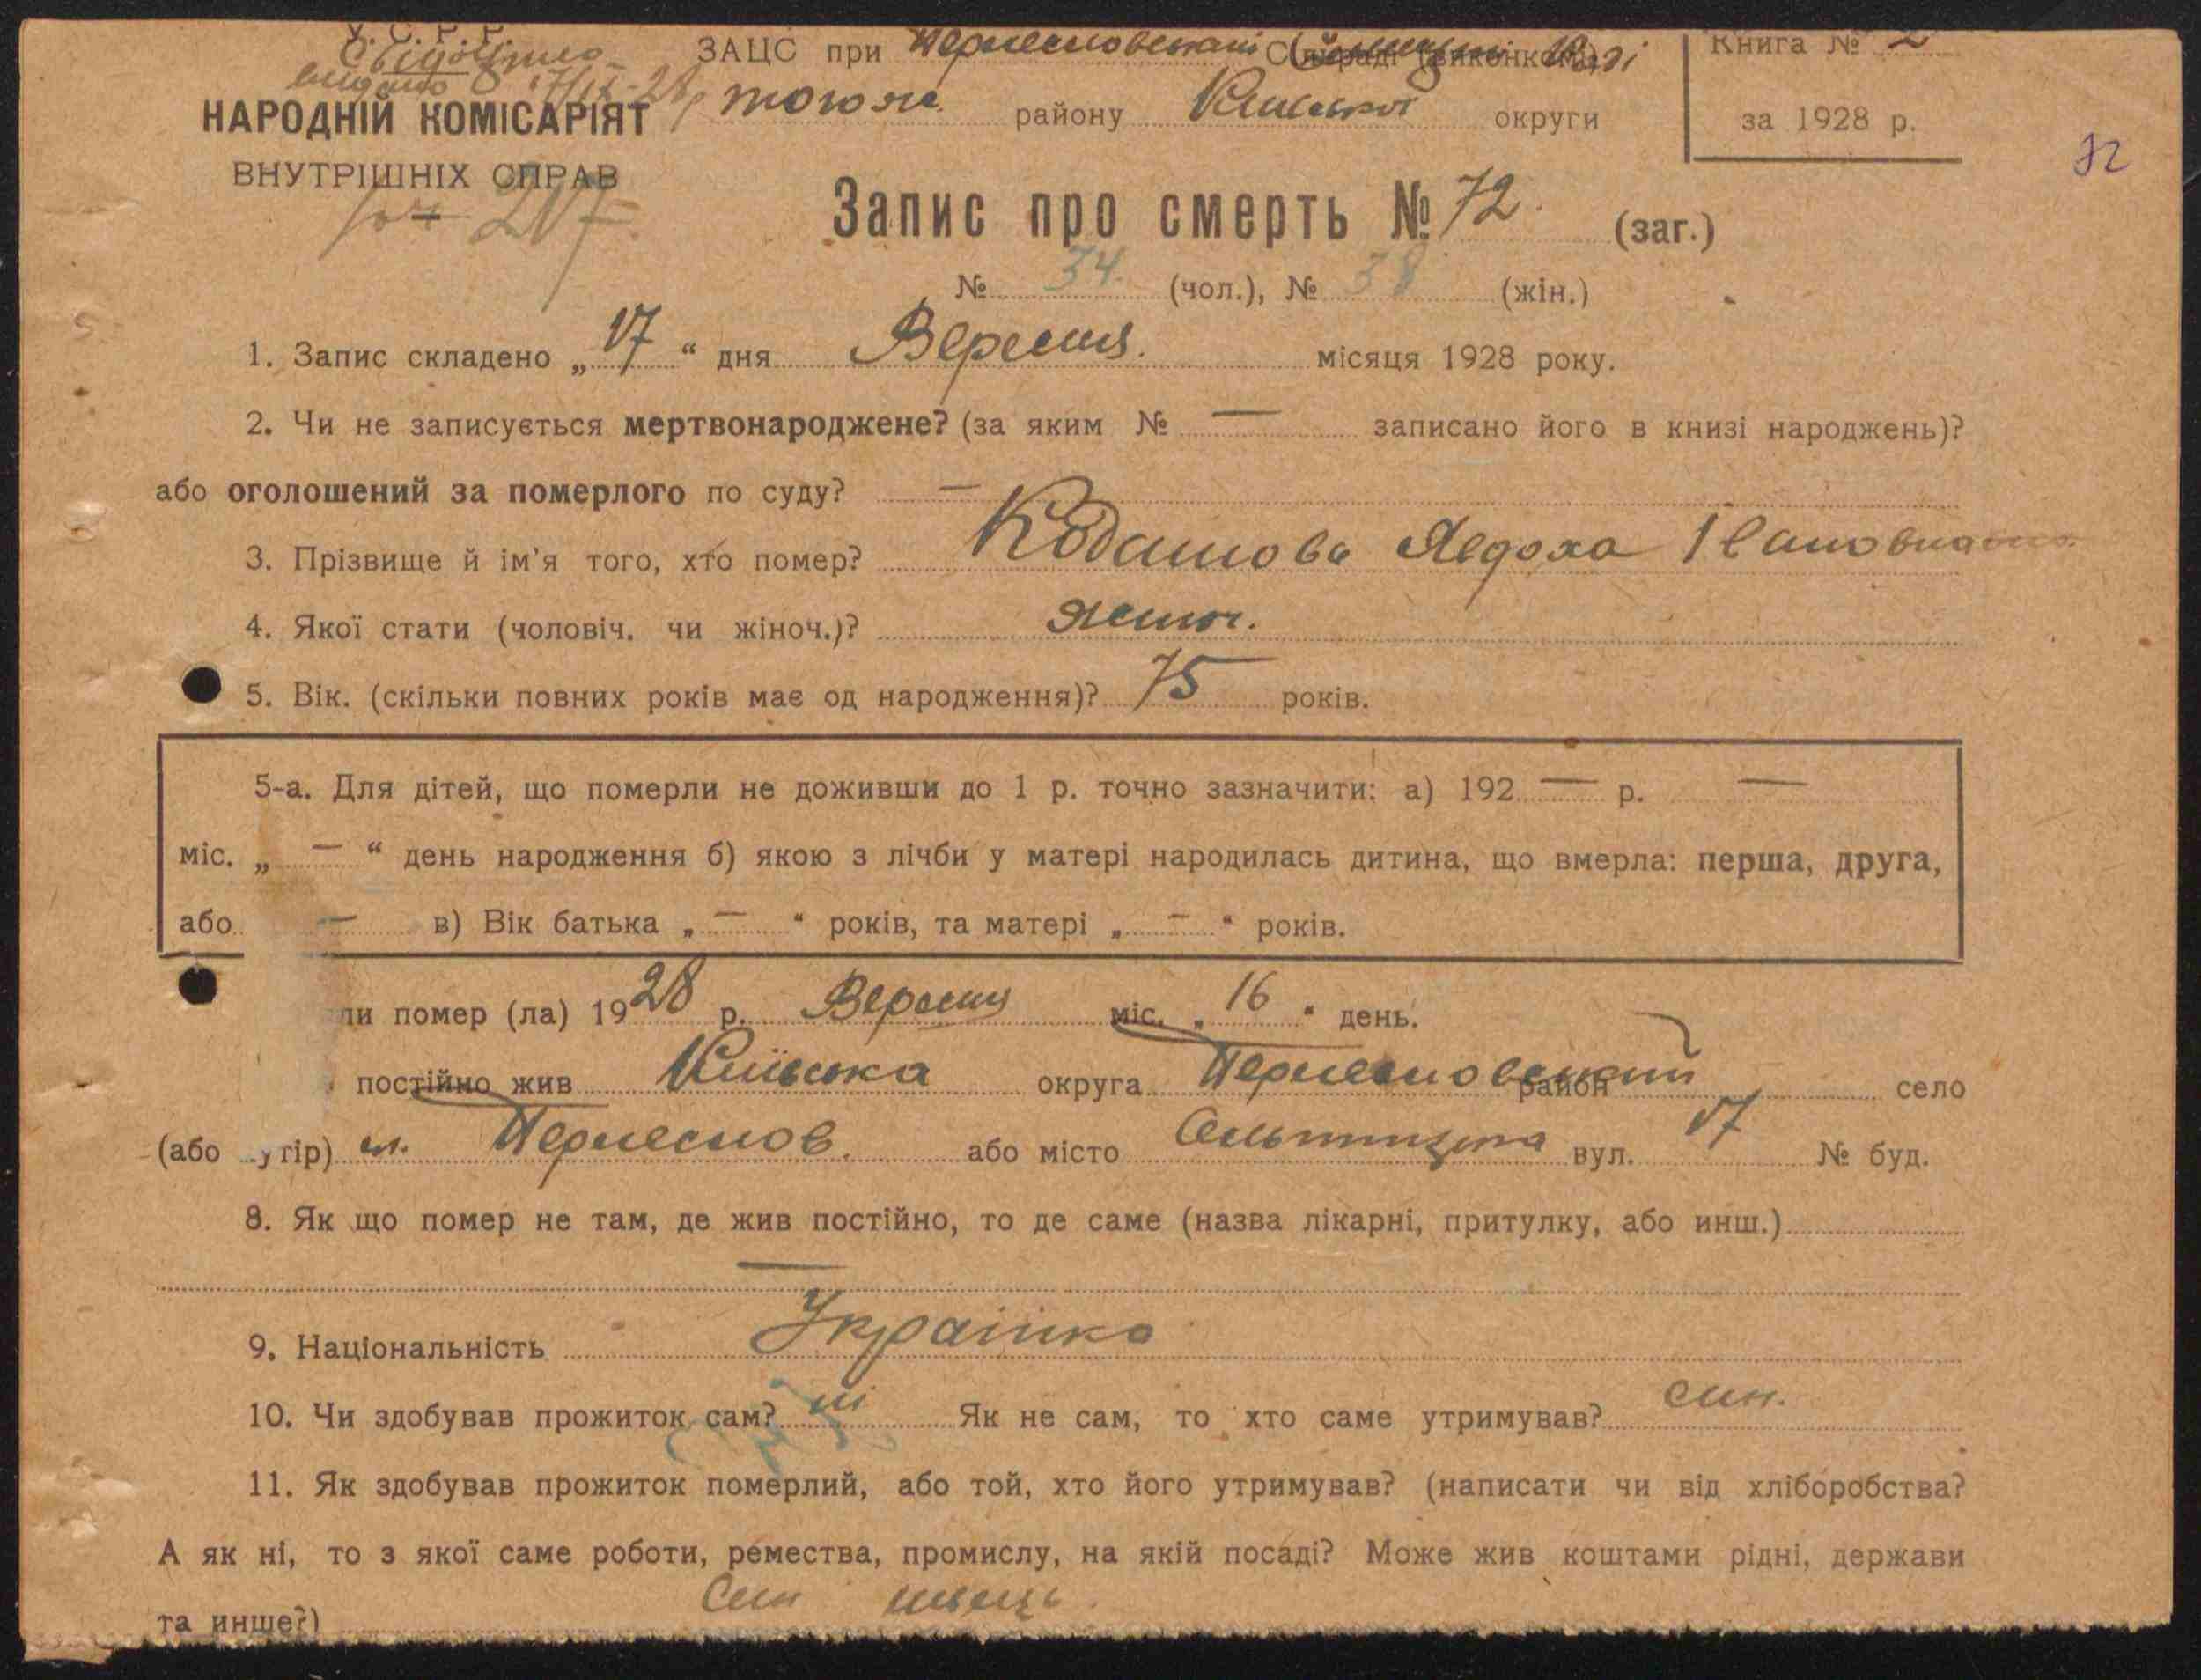 У. С. Р. Р.
Свідоцтво
видано 17/IX-28 р
НАРОДНІЙ КОМІСАРІЯТ
ВНУТРІШНІХ СПРАВ
ЗАЦС при
тогож району Київської округи
Книга № 2
за 1928 р.
72
Запис про смерть № 72. (заг.)
№ 34. (чол.), № 38 (жін.)
1. Запис складено „ 17 “ дня Вересня. місяця 1928 року.
2. Чи не записується мертвонароджене? (за яким № — записано його в книзі народжень)?
або оголошений за померлого по суду? —
3. Прізвище й ім'я того, хто помер? Явдоха Івановна
4. Якої стати (чоловіч. чи жіноч.)? жіноч.
5. Вік. (скільки повних років має од народження)? 75 років.
5-а. Для дітей, що померли не доживши до 1 р. точно зазначити: а) 192 — р. —
міс. „ — “ день народження б) якою з лічби у матері народилась дитина, що вмерла: перша, друга,
або — в) Вік батька „ — “ років, та матері „ — “ років.
ли помер (ла) 1928 р. Вересня міс. „ 16 “ день.
постійно жив Київська округа район село
(або утір) або місто вул. 17 № буд.
8. Як що помер не там, де жив постійно, то де саме (назва лікарні, притулку, або инш.)
—
9. Національність Українка
10. Чи здобував прожиток сам? ні Як не сам, то хто саме утримував? син.
11. Як здобував прожиток померлий, або той, хто його утримував? (написати чи від хліборобства?
А як ні, то з якої саме роботи, ремества, промислу, на якій посаді? Може жив коштами рідні, держави
та инше?) Син швець.